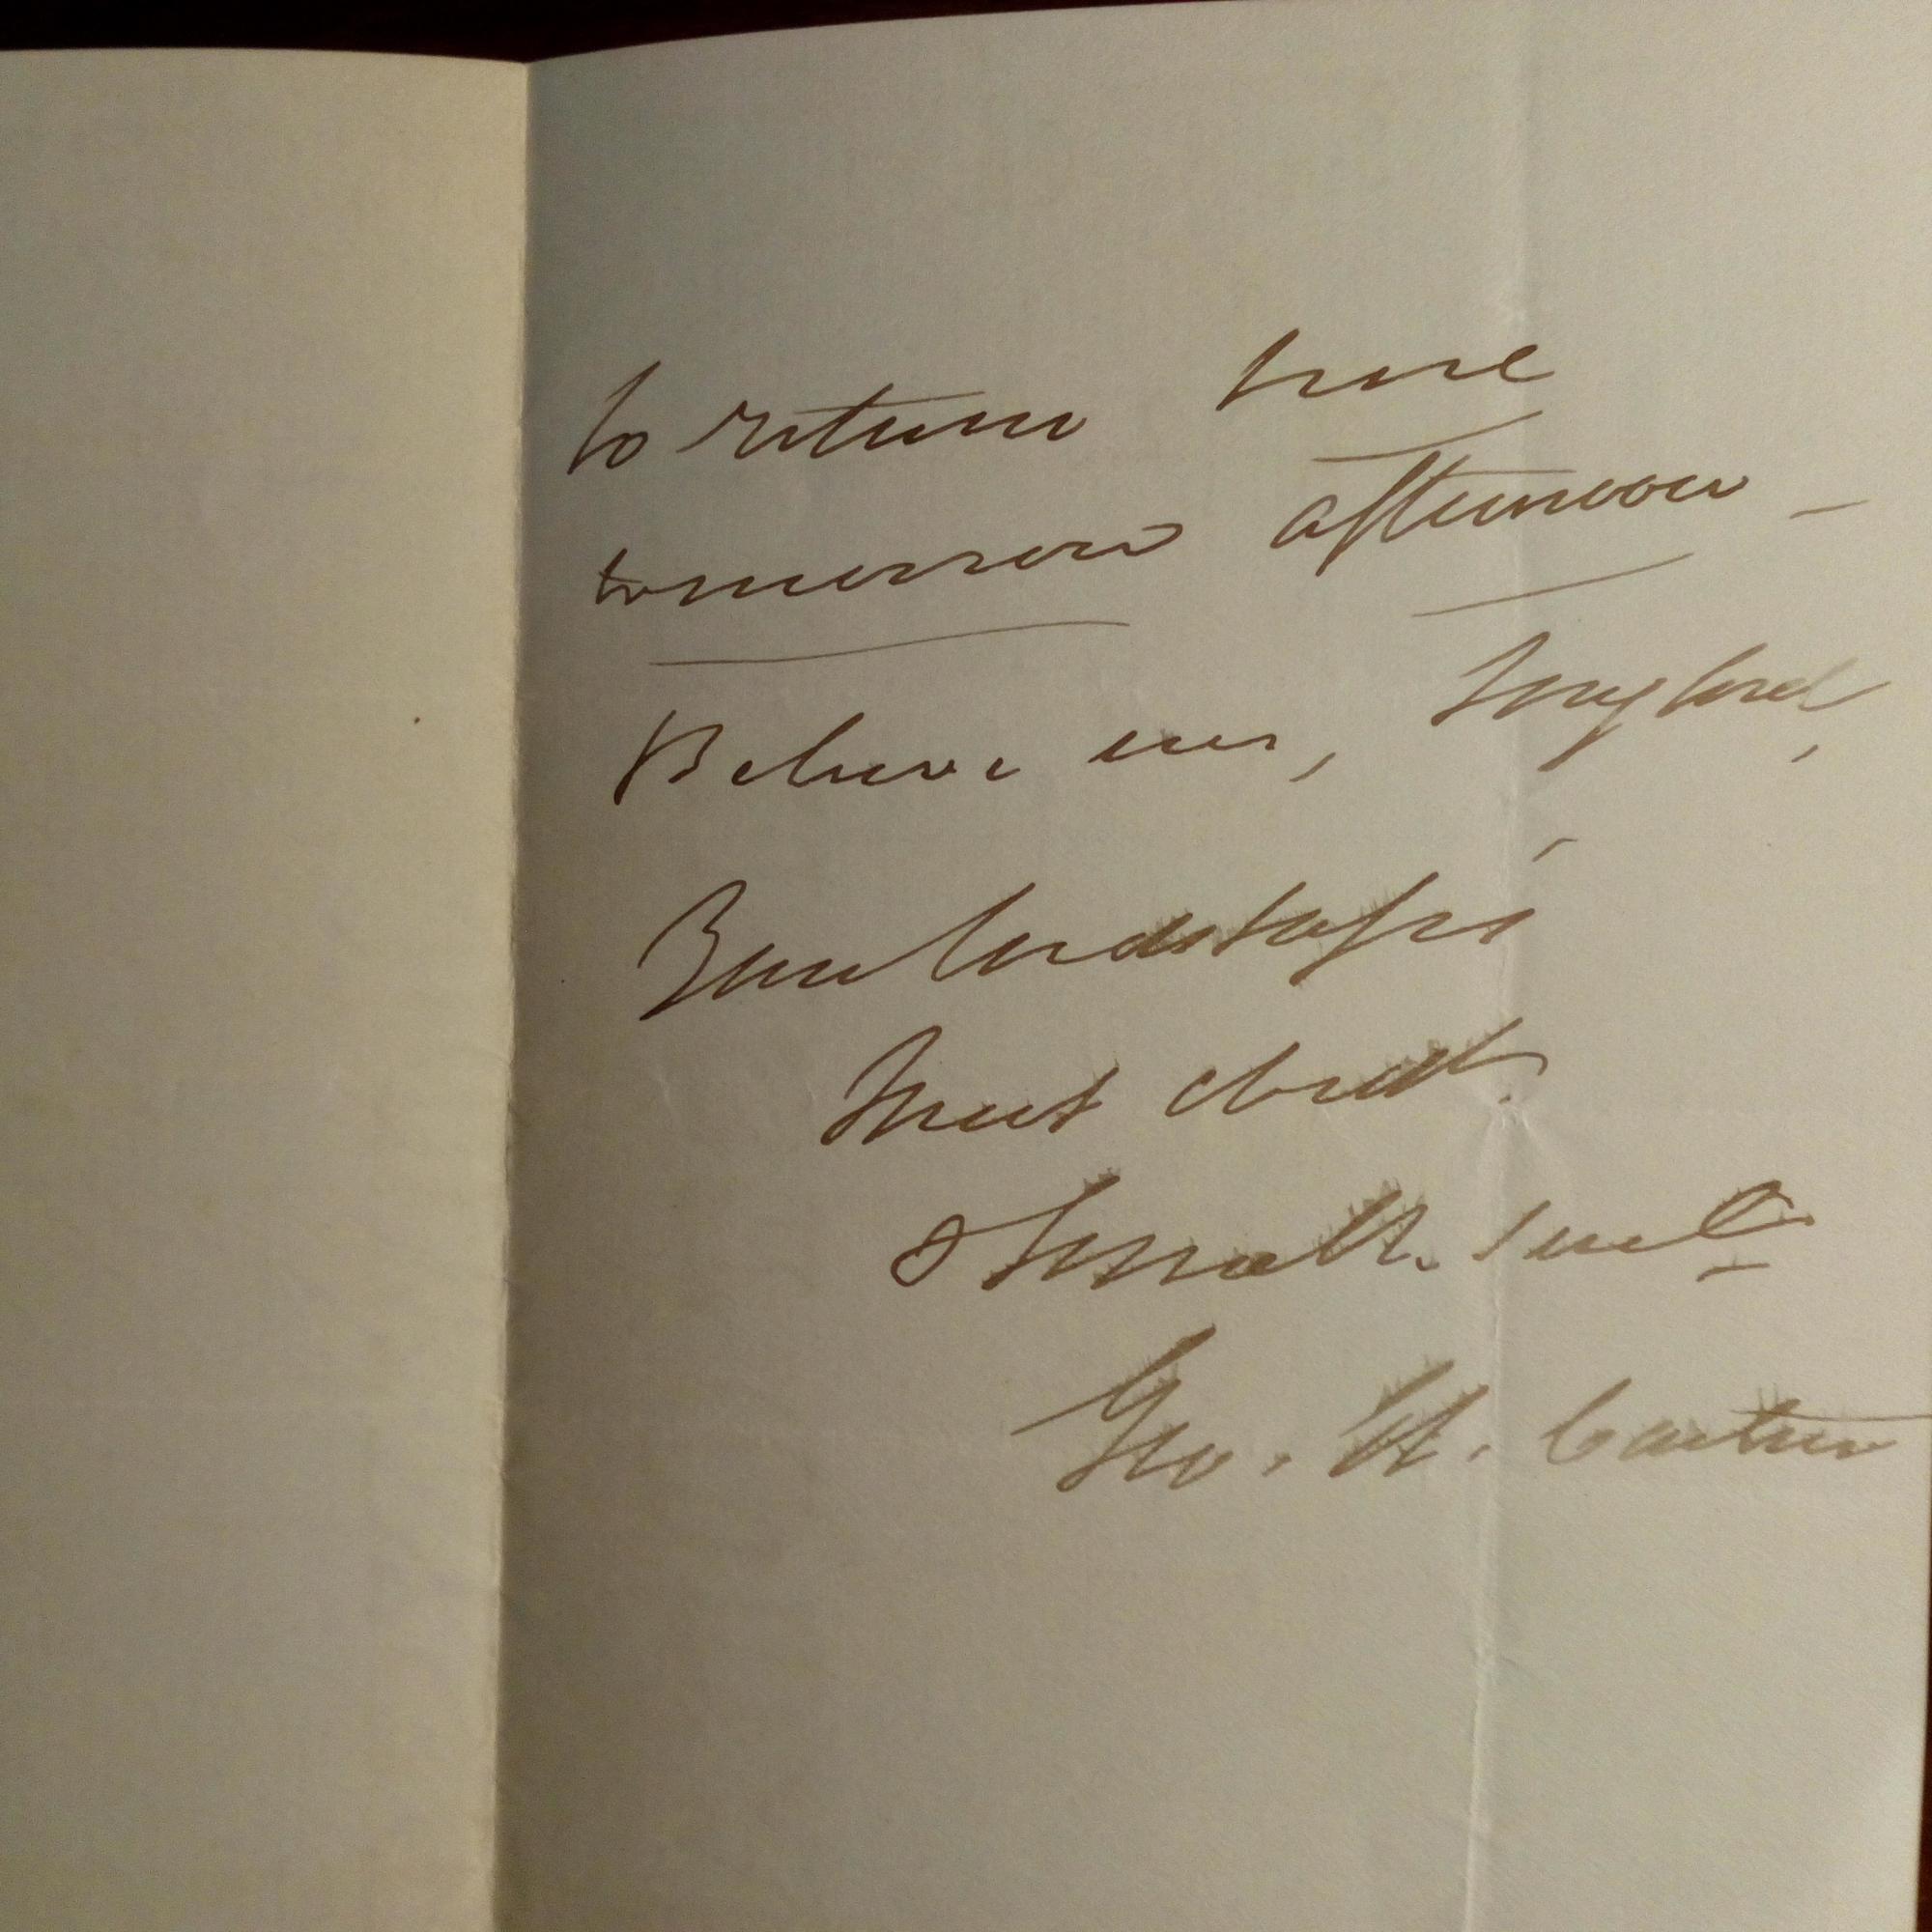 to return here
tomorrow afternoon —
Believe me, My Lord,
Your Lordship's
Most obedt.
& humble servt
Geo. W.